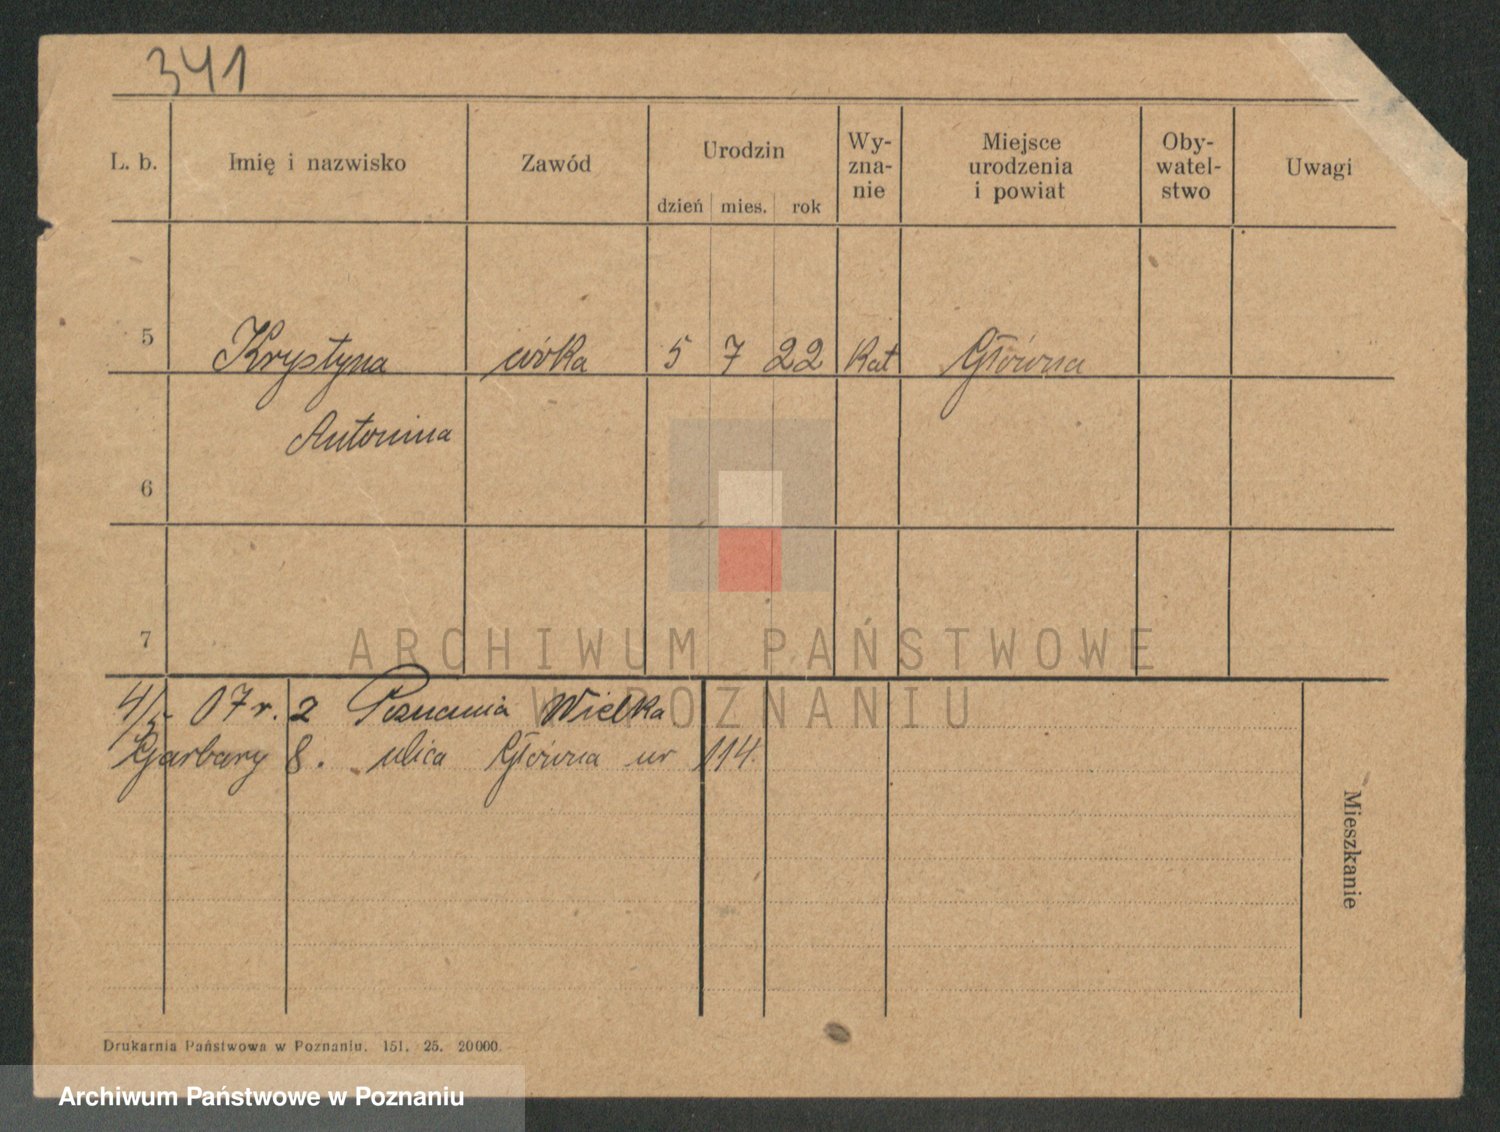 341
L. b. Imię i nazwisko Zawód Urodzin Wy-zna-nie Miejsce urodzenia i powiat Oby-watel-stwo Uwagi
dzień mies. rok
5 Krystyna córka 5 7 22 Kat Główna
Antonina
6
7
ARCHIWUM PAŃSTWOWE
W POZNANIU
4/5 07 r. z Poznania Wielka
Garbary 8. ulica Główna nr 114.
Mieszkanie
Drukarnia Państwowa w Poznaniu. 151. 25. 20000.
Archiwum Państwowe w Poznaniu